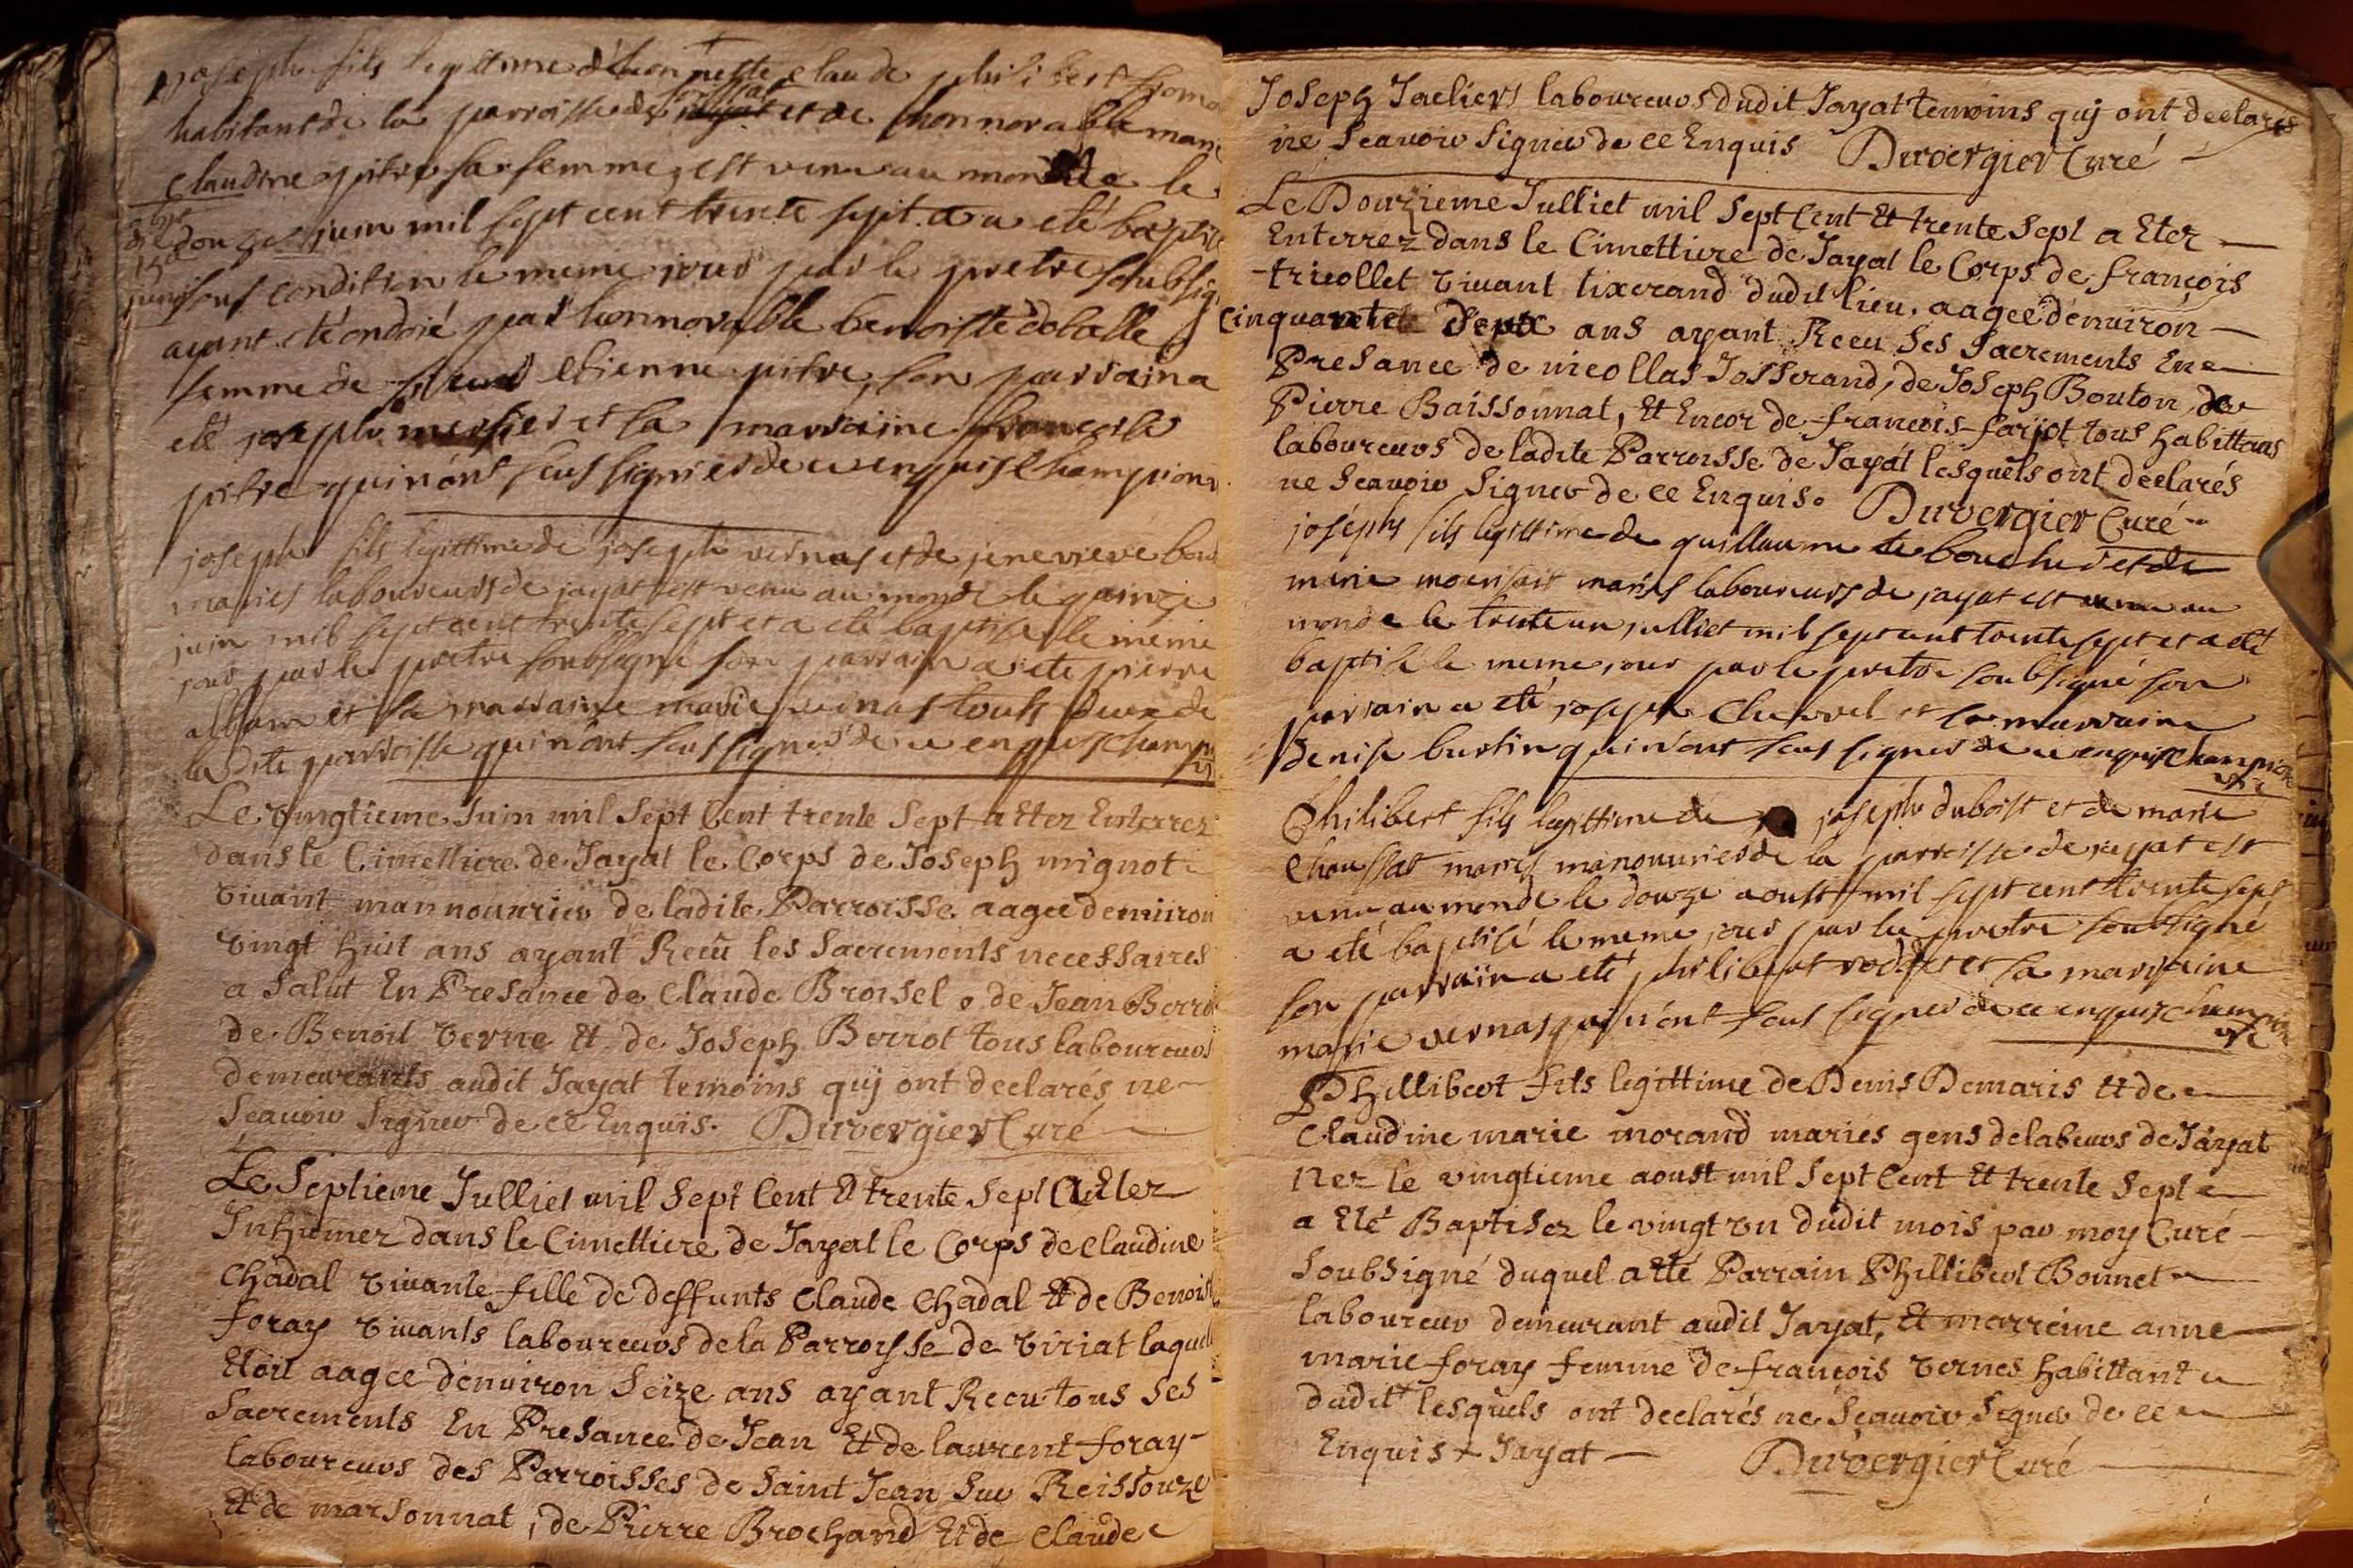 joseph fils legittime d'honneste claude philibert
habitans de la parroisse de et de honnorable
claudine pitre sa femme, est venu au monde le
douze juin mil sept cent trente sept a eté baptisé
sous condition le meme jour par le pretre soubsig
ayant eté ondoié par honnorable benoiste
femme de etienne pitre, son parrain a
eté joseph mercier et la marraine francoise
pitre qui n'ont seus signer de ce enquis Champion
joseph fils legittime de joseph vernas et de jenevieve
mariés laboureurs de jayat est venu au monde le quinze
juin mil sept cent trente sept et a eté baptisé le meme
jour par le pretre soubsigné son parrain a eté pierre
et sa marraine marie vernas touts deux de
ladite parroisse qui n'ont seus signer de ce enquis Champ
Le vingtieme Juin mil Sept Cent trente Sept a Etez Enterrez
dans le Cimettiere de Jayat le Corps de Joseph mignot
vivant mannouvrier de ladite Parroisse aagee denuiron
vingt huit ans ayant Recû les Sacrements necessaires
a Salut En Presance de Claude Broisel, de Jean
de Benoit verne Et de Joseph Berrot tous laboureurs
demeurants audit Jayat temoins quj ont declarés ne
Scauoir Signer de ce Enquis. Duvergier Curé
Le Septieme Julliet mil Sept Cent Et trente Sept a Etez
Inhumez dans le Cimettiere de Jayat le Corps de Claudine
Chadal vivante fille de deffunts Claude Chadal Et de Benoist
foray vivants laboureurs de la Parroysse de viriat laquell
Etoit aagee denuiron Seize ans ayant Recu tous Ses
Sacrements En Presance de Jean Et de laurent foray
laboureurs des Parroisses de Saint Jean Sur Reissouze
Et de marsonnat, de Pierre Brochand Et de Claude
Joseph laboureurs dudit Jayat temoins quj ont declarés
ne Scauoir Signer de ce Enquis Duvergier Curé
Le Douzieme Julliet mil Sept Cent Et trente Sept a Etez
Enterrez dans le Cimettiere de Jayat le Corps de françois
tricollet vivant tixerand dudit lieu, aagee denuiron
Cinquante ans ayant Receu Ses Sacrements En
Presance de nicollas Josserand, de Joseph Bouton, de
Pierre Baissonnat, Et Encor de francois farjot tous habittans
laboureurs de ladite Parroisse de Jayat lesquels ont declarés
ne Scauoir Signer de ce Enquis. Duvergier Curé
joseph fils legittime de guillaume et de
marie mariés laboureurs de jayat est venu au
monde le trente un julliet mil sept cent trente sept et a eté
baptisé le meme jour par le pretre soubsigné son
parrain a eté joseph Chervel et la marraine
denise burtin qui n'ont seus signer de ce enquis Champion
vic
Philibert fils legittime de joseph duboist et de marie
Chaussat mariés manouvrier de la parroisse de jayat est
venu au monde le douze aoust mil sept cent trente sept
a eté baptisé le meme jour par le pretre soubsigné
son parrain a eté philibert et sa marraine
marie vernas qui n'ont seus signer de ce enquis Champion
vic
Phillibert fils legittime de Denis Demaris Et de
Claudine marie morand mariés gens de labeurs de Jayat
Nez le vingtieme aoust mil Sept Cent Et trente Sept
a Eté Baptisez le vingt un dudit mois par moy Curé
Soubsigné duquel a Eté Parrain Phillibert Bonnet
laboureur demeurant audit Jayat, Et marreine anne
marie foray femme de françois vernes habittant
dudit lesquels ont declarés ne Scauoir Signer de ce
Enquis Jayat Duvergier Curé